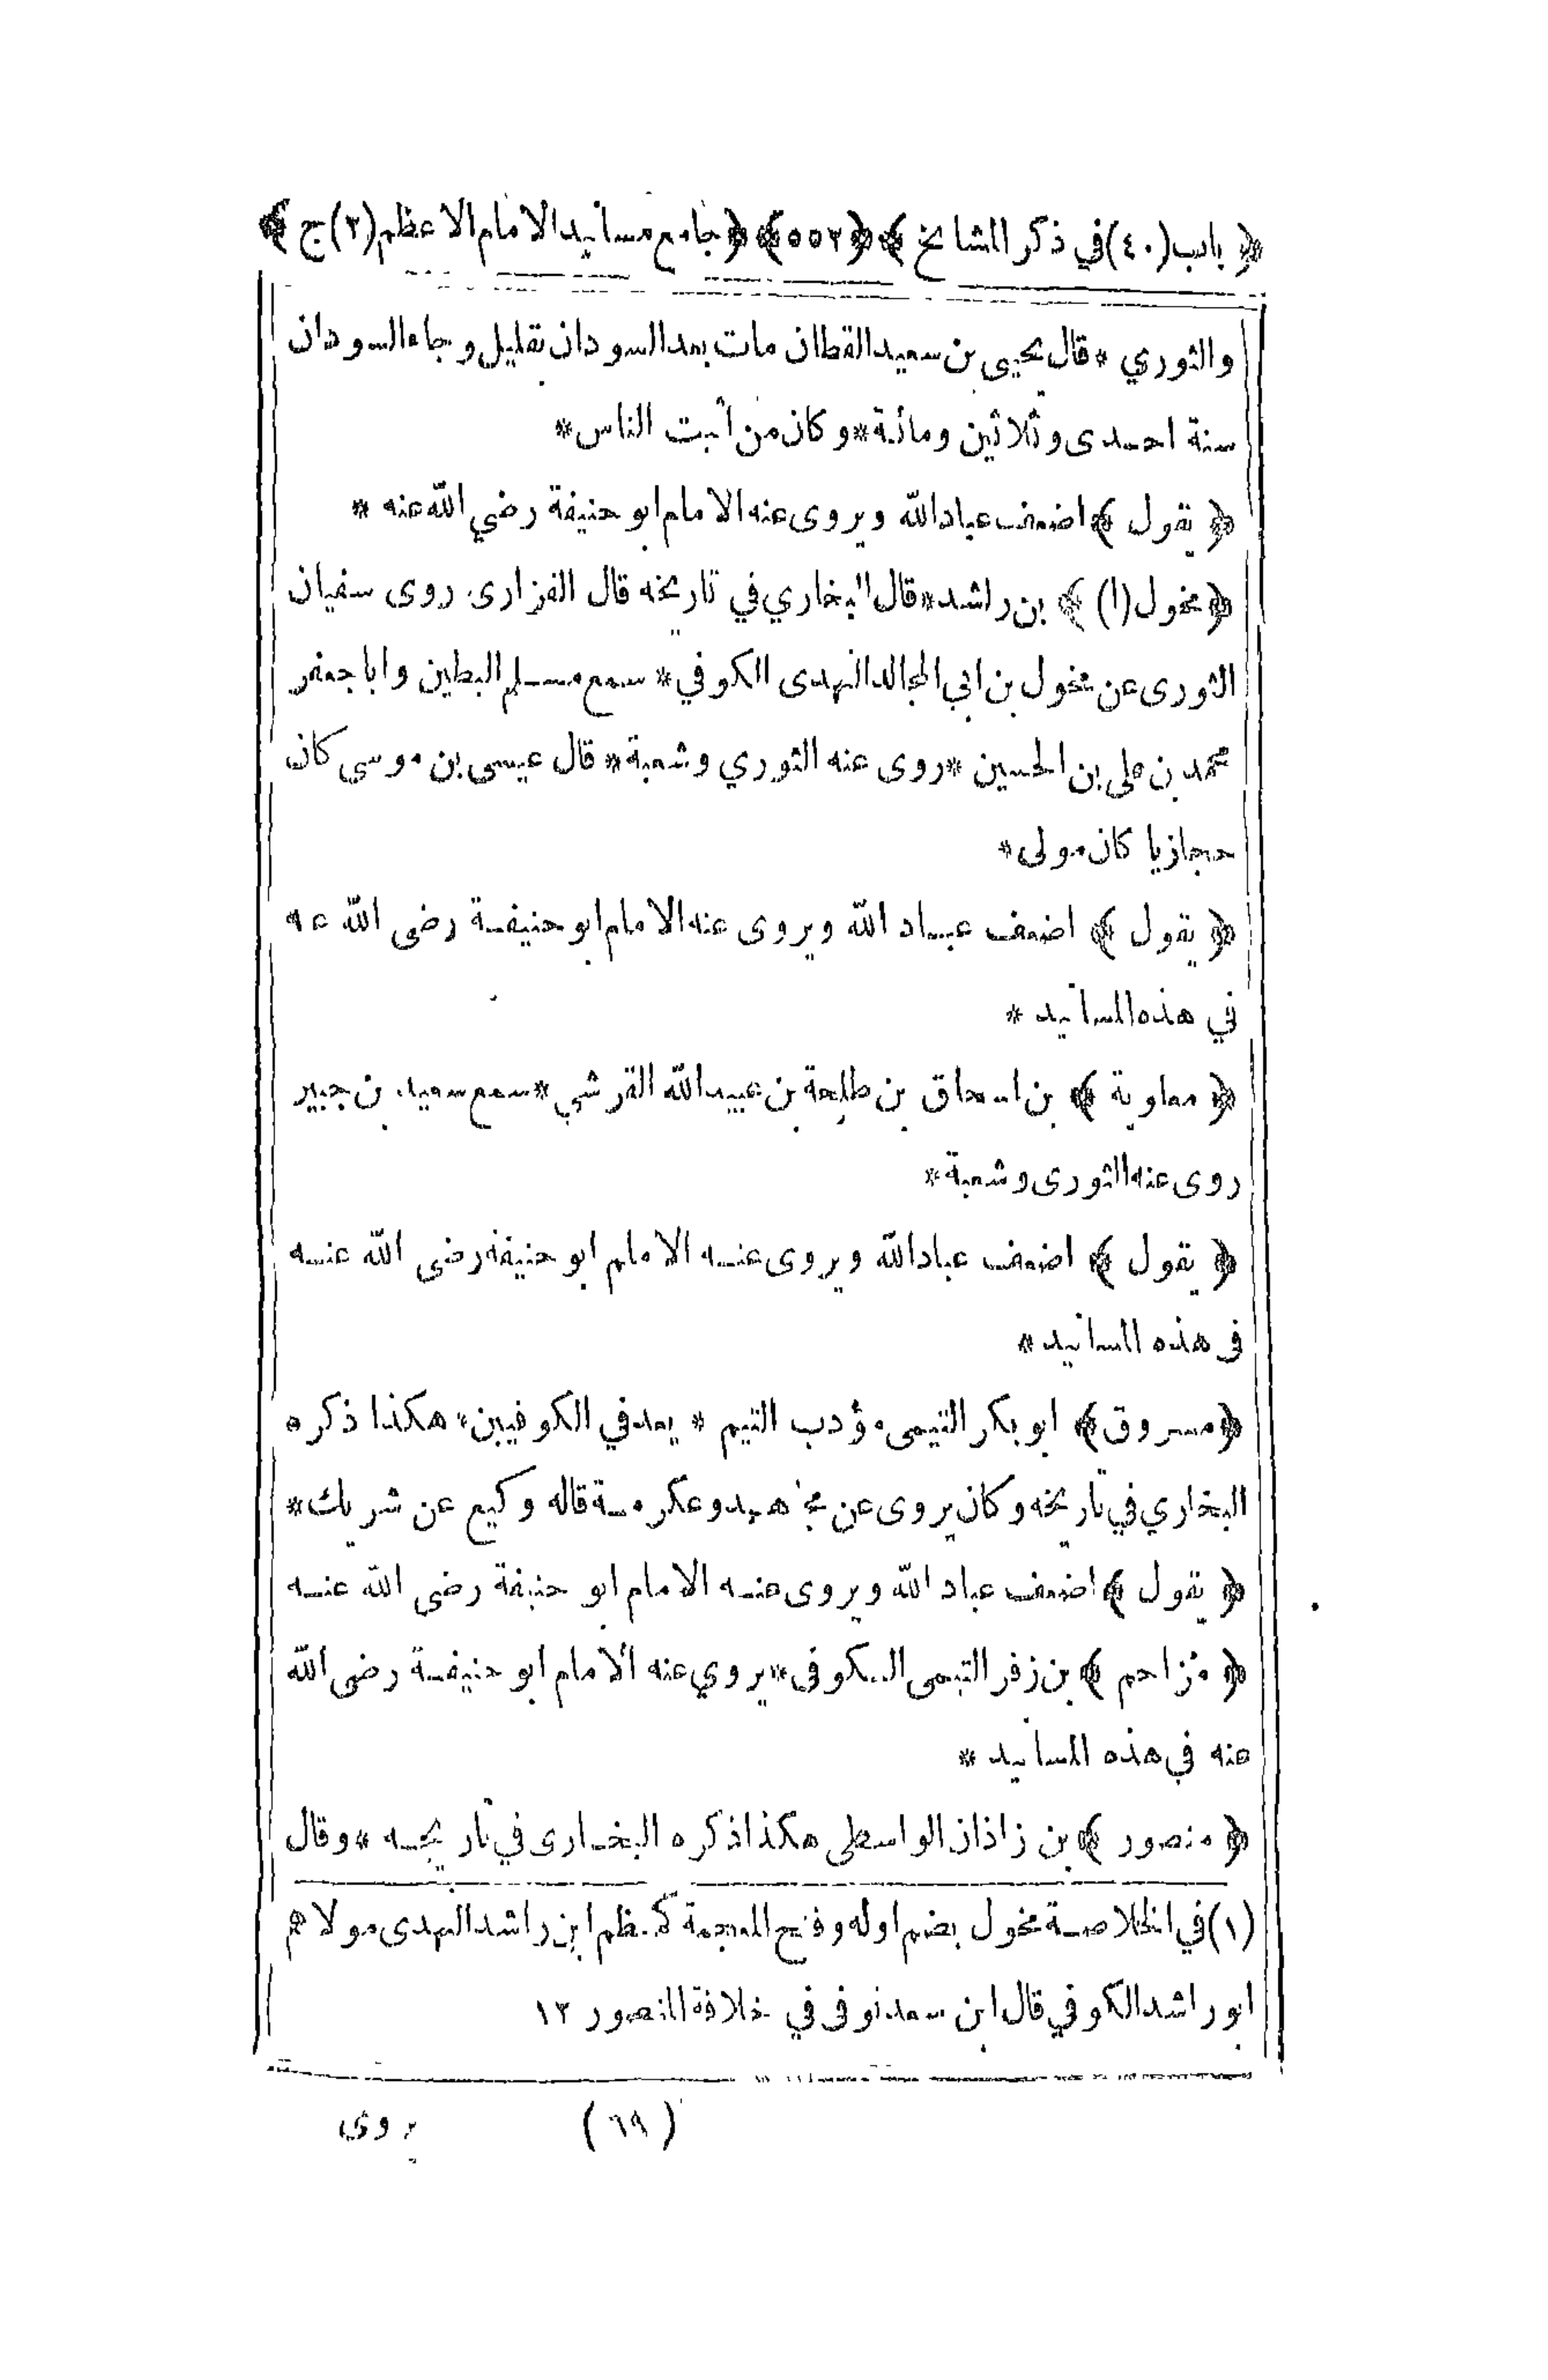 ﴿ باب (٤٠) في ذكر المشايخ ﴾ ﴿ ٥٥٢ ﴾ ﴿ جامع مسانيد الامام الاعظم (٢) ج ﴾
والثوري * قال يحيى بن سعيد القطان مات بعد السودان بقليل وجاء السودان
سنة احدى وثلاثين ومائة * وكان من اثبت الناس *
﴿ يقول ﴾ اضعف عباد الله ويروى عنه الامام ابو حنيفة رضي الله عنه *
﴿ مخول (١) ﴾ بن راشد * قال البخاري في تاريخه قال الفزارى روى سفيان
الثورى عن مخول بن ابي المجالد النهدى الكوفي * سمع مسلم البطين وابا جعفر
محمد بن على بن الحسين * روى عنه الثوري وشعبة * قال عيسى بن موسى كان
حجازيا كان مولى *
﴿ يقول ﴾ اضعف عباد الله ويروى عنه الامام ابو حنيفة رضى الله عنه
في هذه المسانيد *
﴿ معاوية ﴾ بن اسحاق بن طلحة بن عبيد الله القرشي * سمع سعيد بن جبير
روى عنه الثورى وشعبة *
﴿ يقول ﴾ اضعف عباد الله ويروى عنه الامام ابو حنيفة رضى الله عنه
فى هذه المسانيد *
﴿ مسروق ﴾ ابو بكر التيمى مؤدب التيم * يعد في الكوفيين * هكذا ذكره
البخاري في تاريخه وكان يروى عن مجاهد وعكرمة قاله وكيع عن شريك *
﴿ يقول ﴾ اضعف عباد الله ويروى عنه الامام ابو حنيفة رضى الله عنه
﴿ مزاحم ﴾ بن زفر التيمى الكوفى * يروي عنه الامام ابو حنيفة رضى الله
عنه في هذه المسانيد *
﴿ منصور ﴾ بن زاذان الواسطى هكذا ذكره البخارى في تاريخه * وقال
(١) في الخلاصة مخول بضم اوله وفتح المعجمة كمعظم ابن راشد النهدى مولاهم
ابو راشد الكوفي قال ابن سعد توفى في خلافة المنصور ١٢
(٦٩) يروى